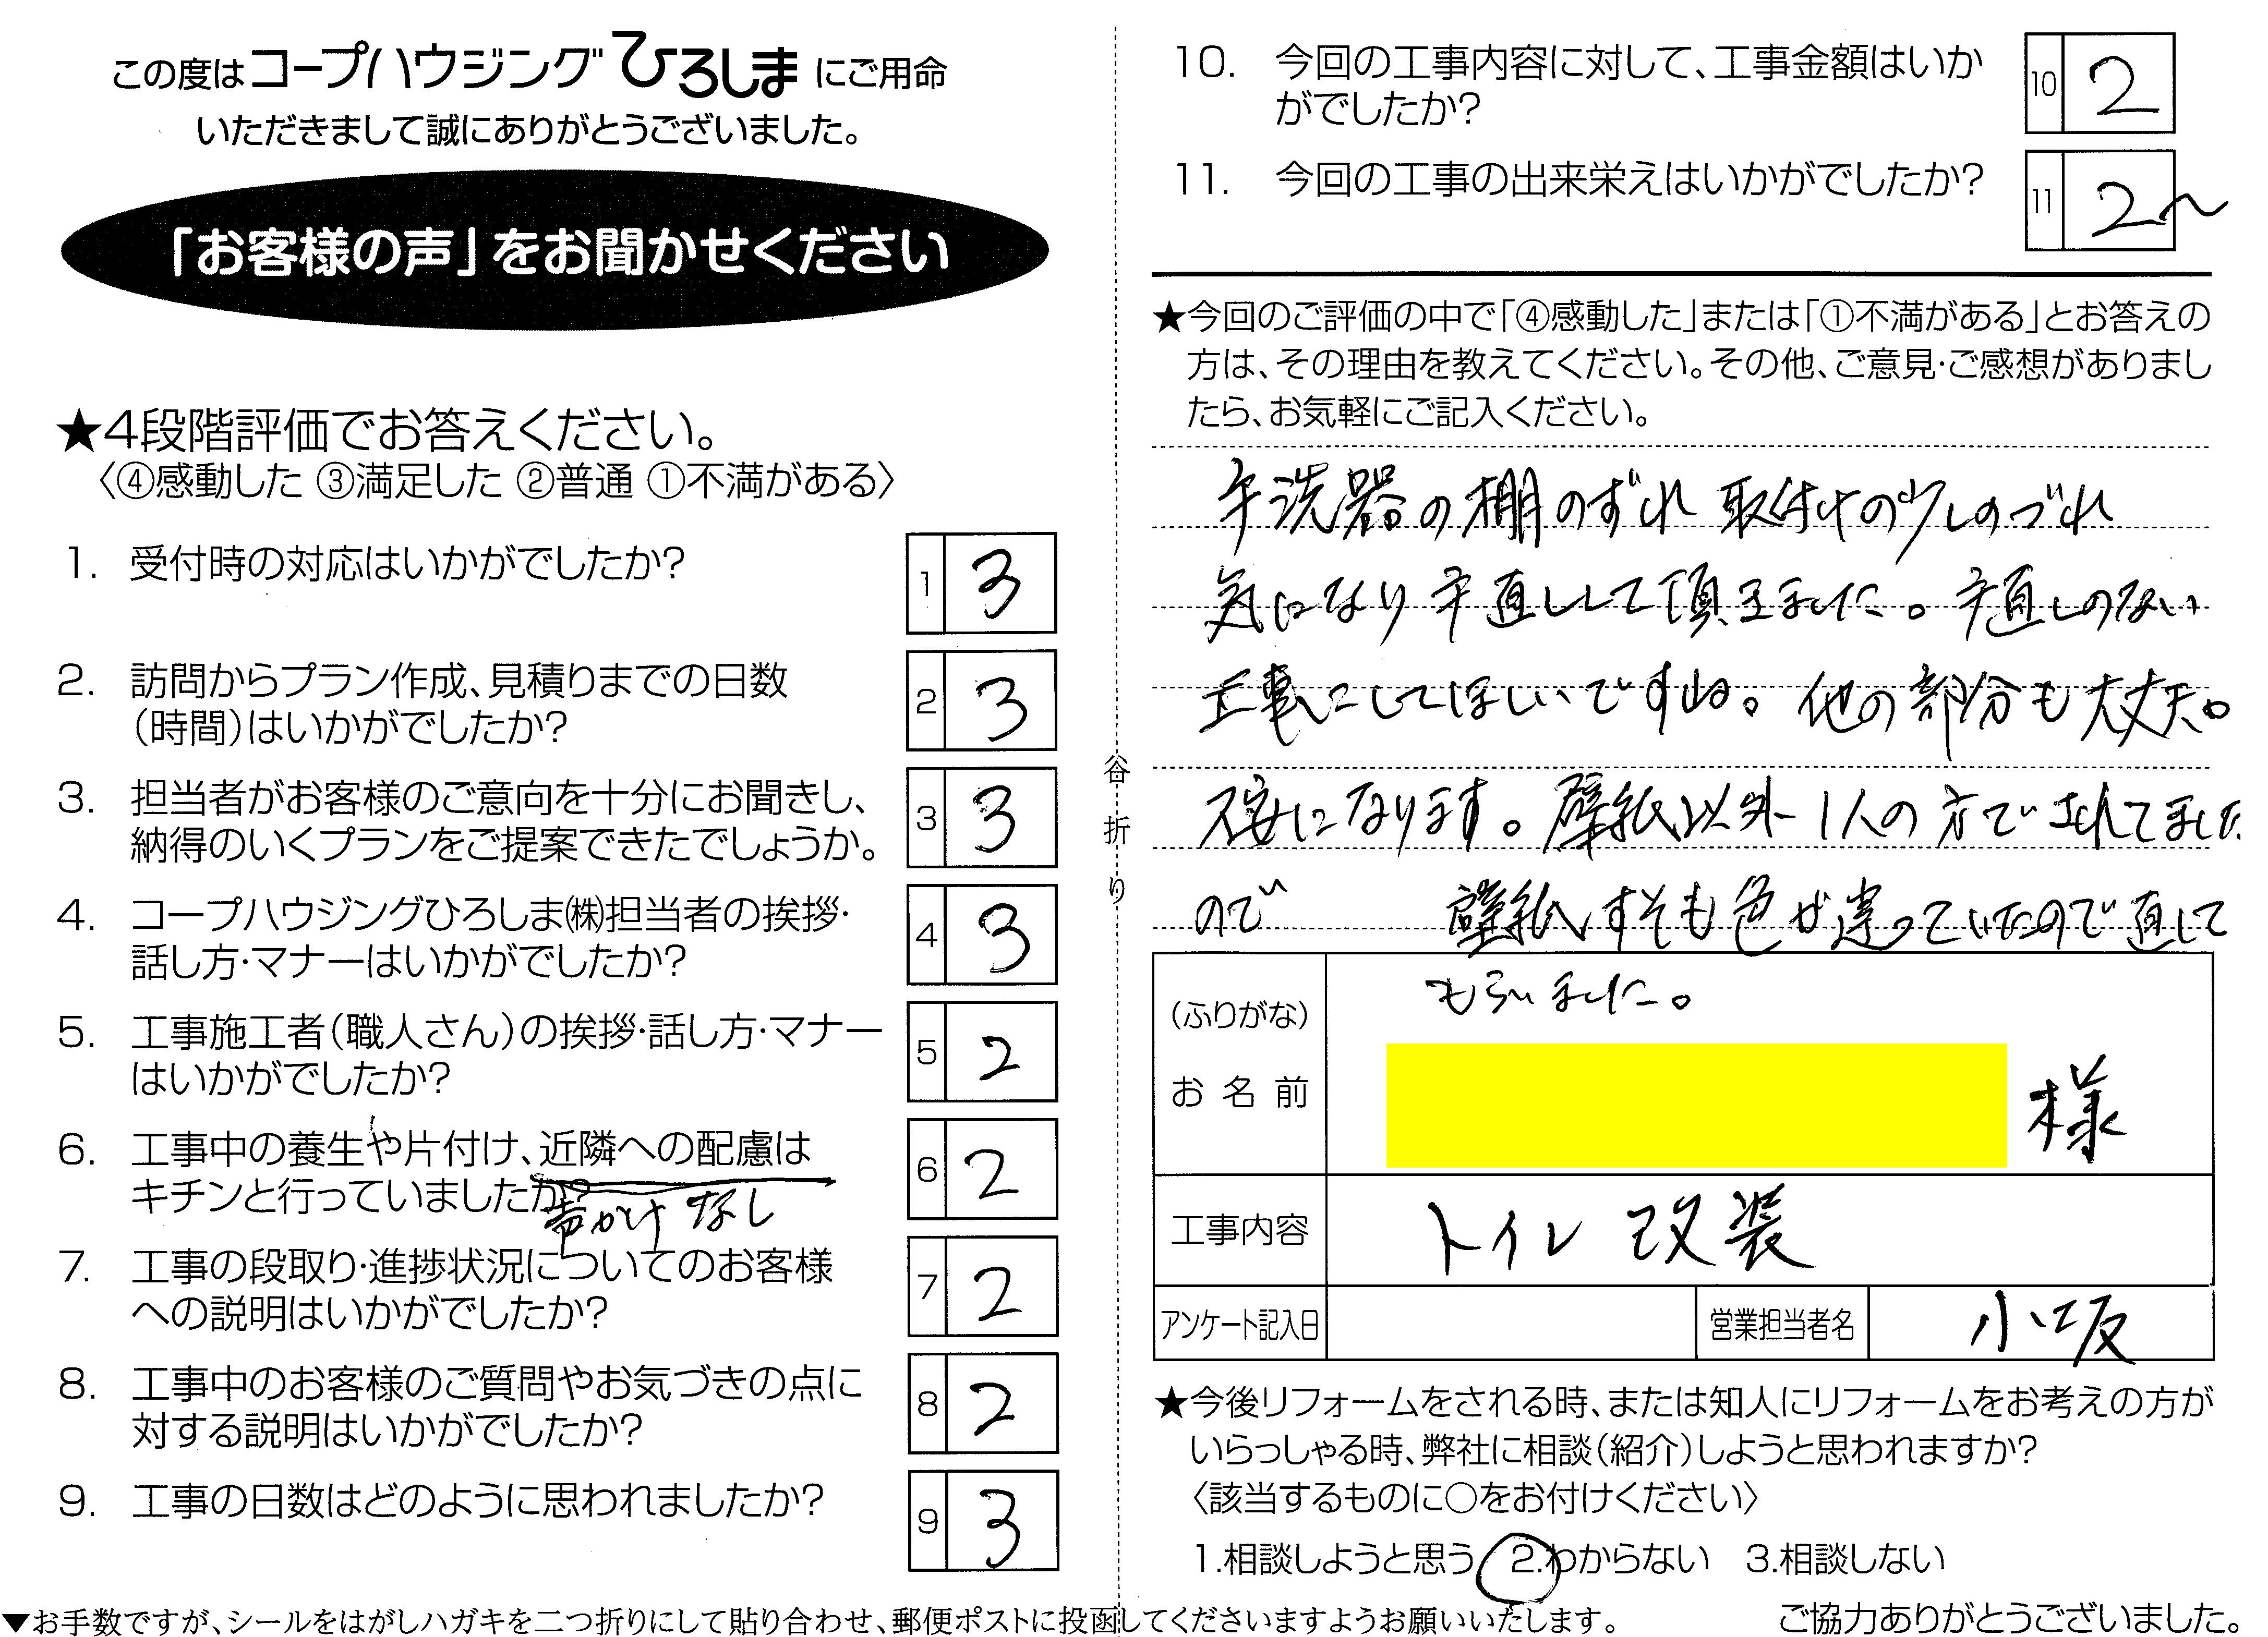 この度はコープハウジングひろしまにご用命
いただきまして誠にありがとうございました。
「お客様の声」をお聞かせください
★4段階評価でお答えください。
〈④感動した ③満足した ②普通 ①不満がある〉
1. 受付時の対応はいかがでしたか?
1 3
2. 訪問からプラン作成、見積りまでの日数
(時間)はいかがでしたか?
2 3
3. 担当者がお客様のご意向を十分にお聞きし、
納得のいくプランをご提案できたでしょうか。
3 3
4. コープハウジングひろしま㈱担当者の挨拶・
話し方・マナーはいかがでしたか?
4 3
5. 工事施工者(職人さん)の挨拶・話し方・マナー
はいかがでしたか?
5 2
6. 工事中の養生や片付け、近隣への配慮は
キチンと行っていましたか?
声かけ なし
6 2
7. 工事の段取り・進捗状況についてのお客様
への説明はいかがでしたか?
7 2
8. 工事中のお客様のご質問やお気づきの点に
対する説明はいかがでしたか?
8 2
9. 工事の日数はどのように思われましたか?
9 3
谷折り
10. 今回の工事内容に対して、工事金額はいか
がでしたか?
10 2
11. 今回の工事の出来栄えはいかがでしたか?
11 2~
★今回のご評価の中で「④感動した」または「①不満がある」とお答えの
方は、その理由を教えてください。その他、ご意見・ご感想がありまし
たら、お気軽にご記入ください。
手洗器の棚のずれ 取付けの少しのづれ
気になり手直しして頂きました。手直しのない
工事にしてほしいですね。他の部分も大丈夫。
不安になります。壁紙以外1人の方でされてました
ので 壁紙すそも色が違っていたので直して
もらいました。
(ふりがな)
お名前
様
工事内容 トイレ改装
アンケート記入日 営業担当者名 小坂
★今後リフォームをされる時、または知人にリフォームをお考えの方が
いらっしゃる時、弊社に相談(紹介)しようと思われますか?
〈該当するものに○をお付けください〉
1.相談しようと思う 2.わからない 3.相談しない
▼お手数ですが、シールをはがしハガキを二つ折りにして貼り合わせ、郵便ポストに投函してくださいますようお願いいたします。
ご協力ありがとうございました。